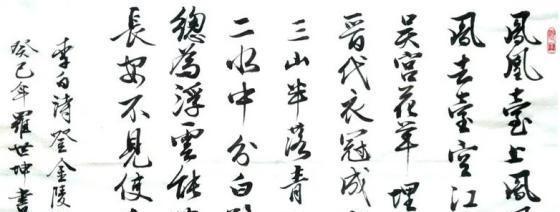 鳳凰臺上鳳
鳳去臺空江
吳宮花草埋
晉代衣冠成
三山半落青
二水中分白
總為浮雲能
長安不見使
李白詩登金陵
癸巳年羅世坤書